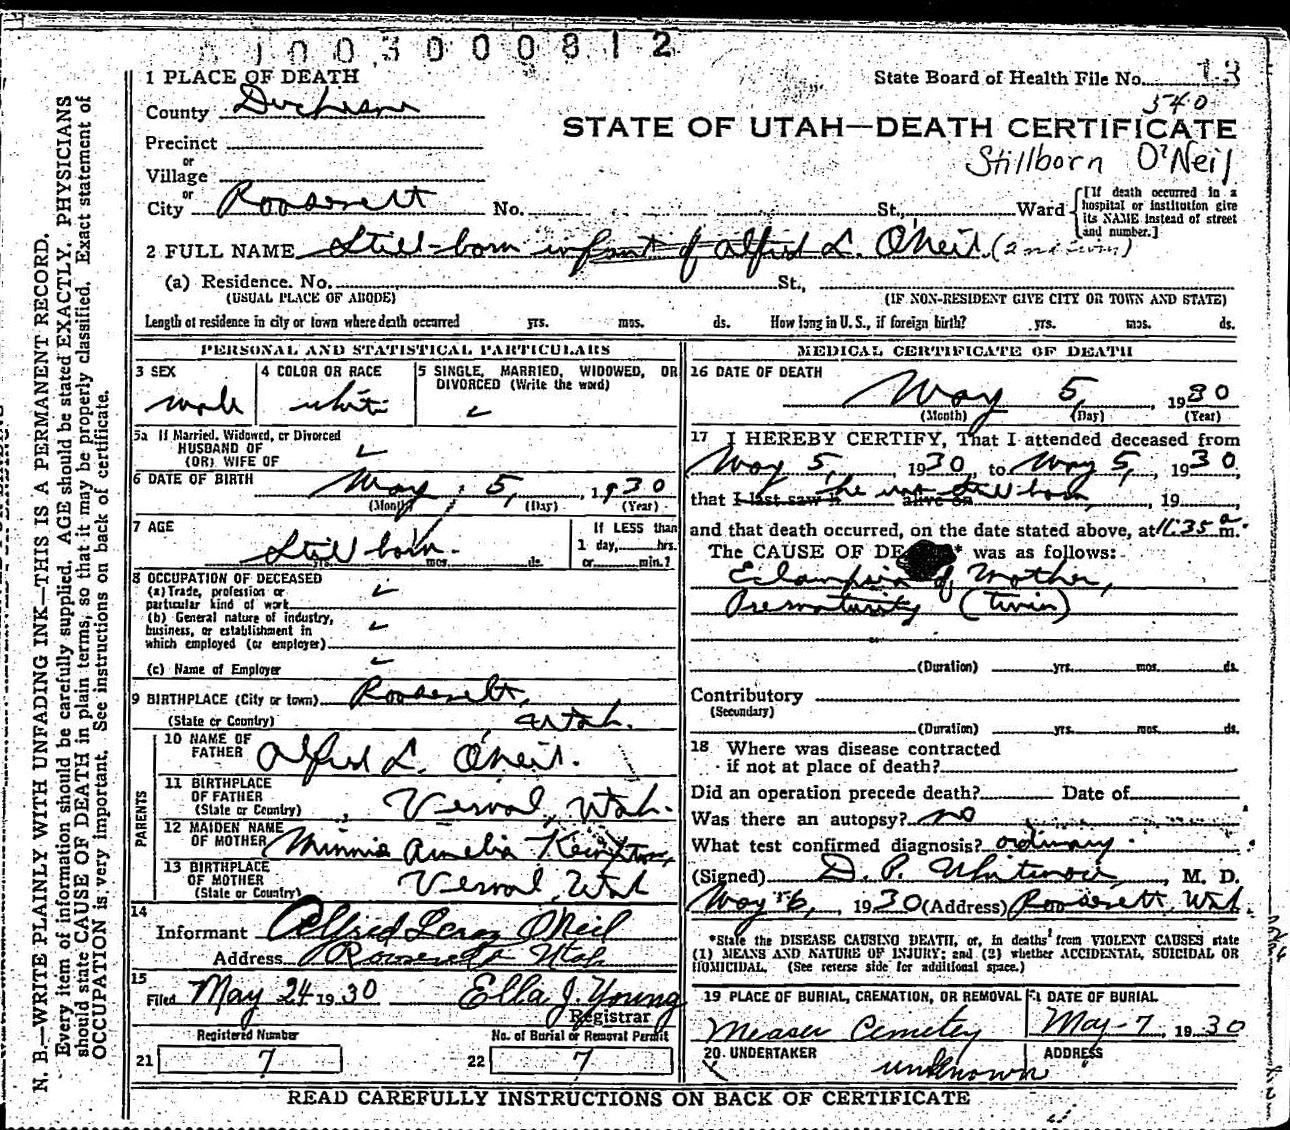 1003000812
1 PLACE OF DEATH
State Board of Health File No. 13
County Duchesne
540
STATE OF UTAH—DEATH CERTIFICATE
Precinct
Stillborn O'Neil
or
Village
or
City Roosevelt No. St., Ward
[If death occurred in a
hospital or institution give
its NAME instead of street
and number.]
2 FULL NAME Still-born infant of Alfred L. O'Neil. (2nd twin)
(a) Residence. No. St.,
(USUAL PLACE OF ABODE) (IF NON-RESIDENT GIVE CITY OR TOWN AND STATE)
Length of residence in city or town where death occurred yrs. mos. ds. How long in U. S., if foreign birth? yrs. mos. ds.
PERSONAL AND STATISTICAL PARTICULARS
3 SEX
male
4 COLOR OR RACE
white
5 SINGLE, MARRIED, WIDOWED, OR
DIVORCED (Write the word)
5a If Married, Widowed, or Divorced
HUSBAND OF
(OR) WIFE OF
6 DATE OF BIRTH May 5, 1930
(Month) (Day) (Year)
7 AGE
Still born.
yrs. mos. ds.
If LESS than
1 day, hrs.
or min.?
8 OCCUPATION OF DECEASED
(a) Trade, profession or
particular kind of work
(b) General nature of industry,
business, or establishment in
which employed (or employer)
(c) Name of Employer
9 BIRTHPLACE (City or town) Roosevelt,
(State or Country) Utah.
PARENTS
10 NAME OF
FATHER Alfred L. O'Neil.
11 BIRTHPLACE
OF FATHER
(State or Country) Vernal, Utah.
12 MAIDEN NAME
OF MOTHER Minnie Amelia
13 BIRTHPLACE
OF MOTHER
(State or Country) Vernal, Utah
14
Informant Alfred Leroy O'Neil
Address Roosevelt Utah
15
Filed May 24 1930 Ella J. Young
Registrar
Registered Number No. of Burial or Removal Permit
21 7 22 7
MEDICAL CERTIFICATE OF DEATH
16 DATE OF DEATH
May 5, 1930
(Month) (Day) (Year)
17 I HEREBY CERTIFY, That I attended deceased from
May 5, 1930, to May 5, 1930.
that I last saw h alive on he was still born, 19
and that death occurred, on the date stated above, at 11:35 a m.
The CAUSE OF DEATH* was as follows:
Eclampsia of Mother,
Prematurity (twin)
(Duration) yrs. mos. ds.
Contributory
(Secondary)
(Duration) yrs. mos. ds.
18 Where was disease contracted
if not at place of death?
Did an operation precede death? Date of
Was there an autopsy? no
What test confirmed diagnosis? ordinary
(Signed) D. P. Whitmore, M. D.
May 6, 1930 (Address) Roosevelt, Utah.
*State the DISEASE CAUSING DEATH, or, in deaths from VIOLENT CAUSES state
(1) MEANS AND NATURE OF INJURY; and (2) whether ACCIDENTAL, SUICIDAL OR
HOMICIDAL. (See reverse side for additional space.)
19 PLACE OF BURIAL, CREMATION, OR REMOVAL
Measer Cemetery
DATE OF BURIAL
May-7, 1930
20. UNDERTAKER
unknown
ADDRESS
READ CAREFULLY INSTRUCTIONS ON BACK OF CERTIFICATE
N. B.—WRITE PLAINLY WITH UNFADING INK—THIS IS A PERMANENT RECORD.
Every item of information should be carefully supplied. AGE should be stated EXACTLY. PHYSICIANS
should state CAUSE OF DEATH in plain terms, so that it may be properly classified. Exact statement of
OCCUPATION is very important. See instructions on back of certificate.